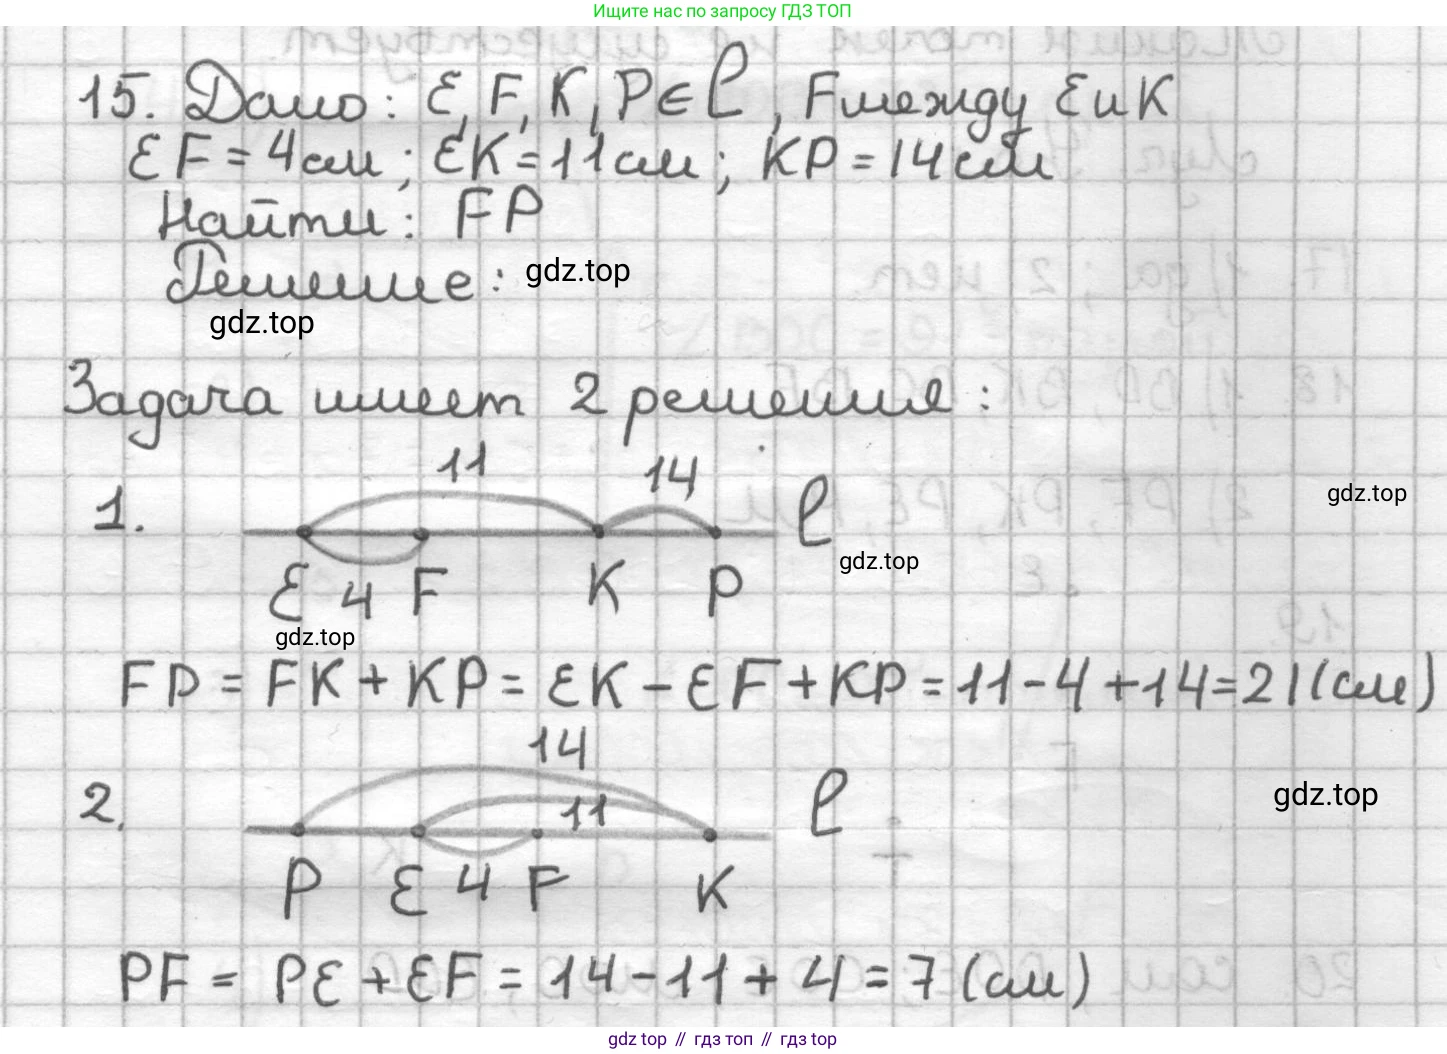 Ищите нас по запросу ГДЗ ТОП
15. Дано: E, F, K, P ∈ l, F между E и K
EF = 4 см; EK = 11 см; KP = 14 см
Найти: FP
Решение: gdz.top
gdz.top
Задача имеет 2 решения:
11 14
1. l gdz.top
gdz.top
E 4 F K P
gdz.top
FP = FK + KP = EK - EF + KP = 11 - 4 + 14 = 21 (см)
14
2. 11 l gdz.top
P E 4 F K
PF = PE + EF = 14 - 11 + 4 = 7 (см)
gdz.top // гдз топ // gdz.top